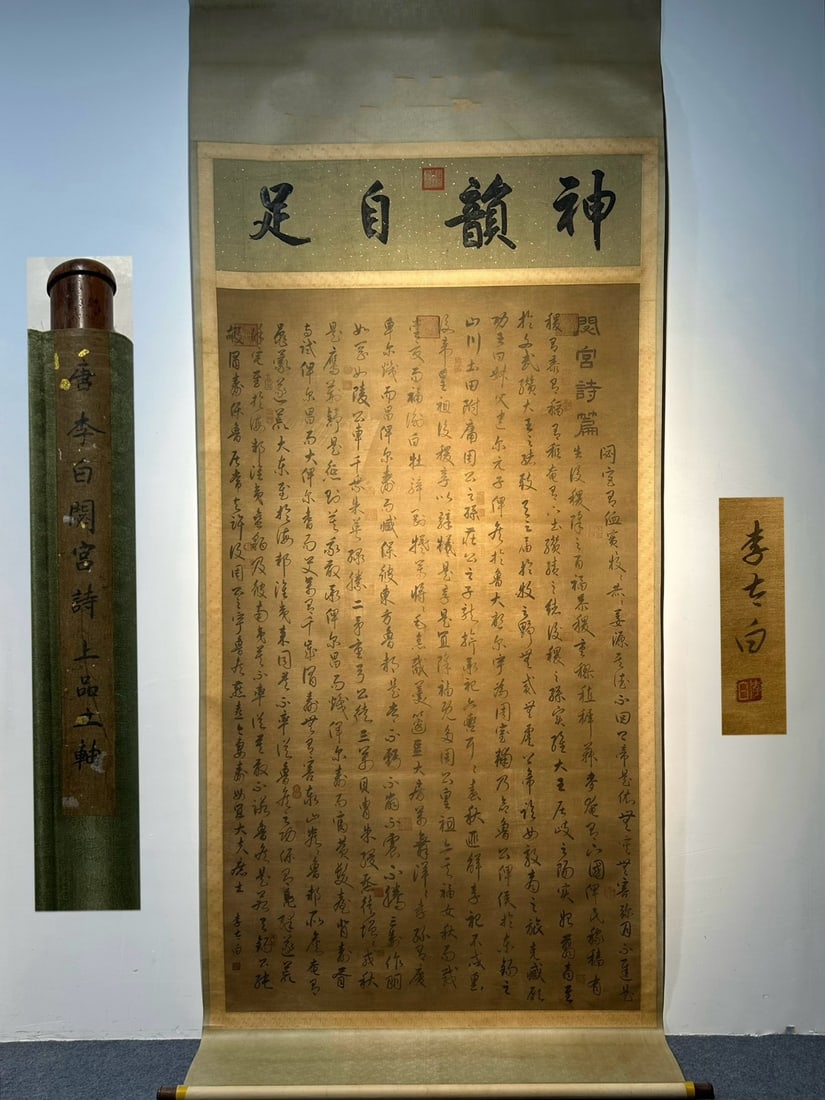 神韻自足
閟宮詩篇
閟宮有侐實〻枚〻赫〻姜源其德不回上帝是依無災無害彌月不遲是
生后稷降之百福黍稷重穋稙稺菽麥奄有下國俾民稼穡有
稷有黍有稻有秬奄有下土纘禹之緒后稷之孫實維大王居岐之陽實始翦商至
於文武纘大王之緒致天之屆於牧之野無貳無虞上帝臨女敦商之旅克咸厥
功王曰叔父建尔元子俾侯於魯大啟尔宇為周室輔乃命魯公俾侯於東錫之
山川土田附庸周公之孫莊公之子龍旂承祀六轡耳〻春秋匪解享祀不忒皇
后帝皇祖后稷享以騂犧是享是宜降福既多周公皇祖亦其福女秋而載
嘗夏而福衡白牡騂剛犧尊將〻毛炰胾羹籩豆大房萬舞洋〻孝孫有慶
卑尔熾而昌俾尔壽而臧保彼東方魯邦是常不虧不崩不震不騰三壽作朋
如岡如陵公車千乘朱英綠縢二矛重弓公徒三萬貝胄朱綅烝徒增〻戎狄
是膺荊舒是懲則莫我敢承俾尔昌而熾俾尔壽而富黃髮台背壽胥
與試俾尔昌而大俾尔耆而艾萬有千歲眉壽無有害泰山巖〻魯邦所詹奄有
龜蒙遂荒大東至於海邦淮夷來同莫不率從魯侯之功保有鳧繹遂荒
徐宅至於海邦淮夷蠻貊及彼南夷莫不率從莫敢不諾魯侯是若天錫公純
嘏眉壽保魯居常與許復周公之宇魯侯燕喜令妻壽母宜大夫庶士 李太白
唐李白閟宮詩上品立軸
李太白